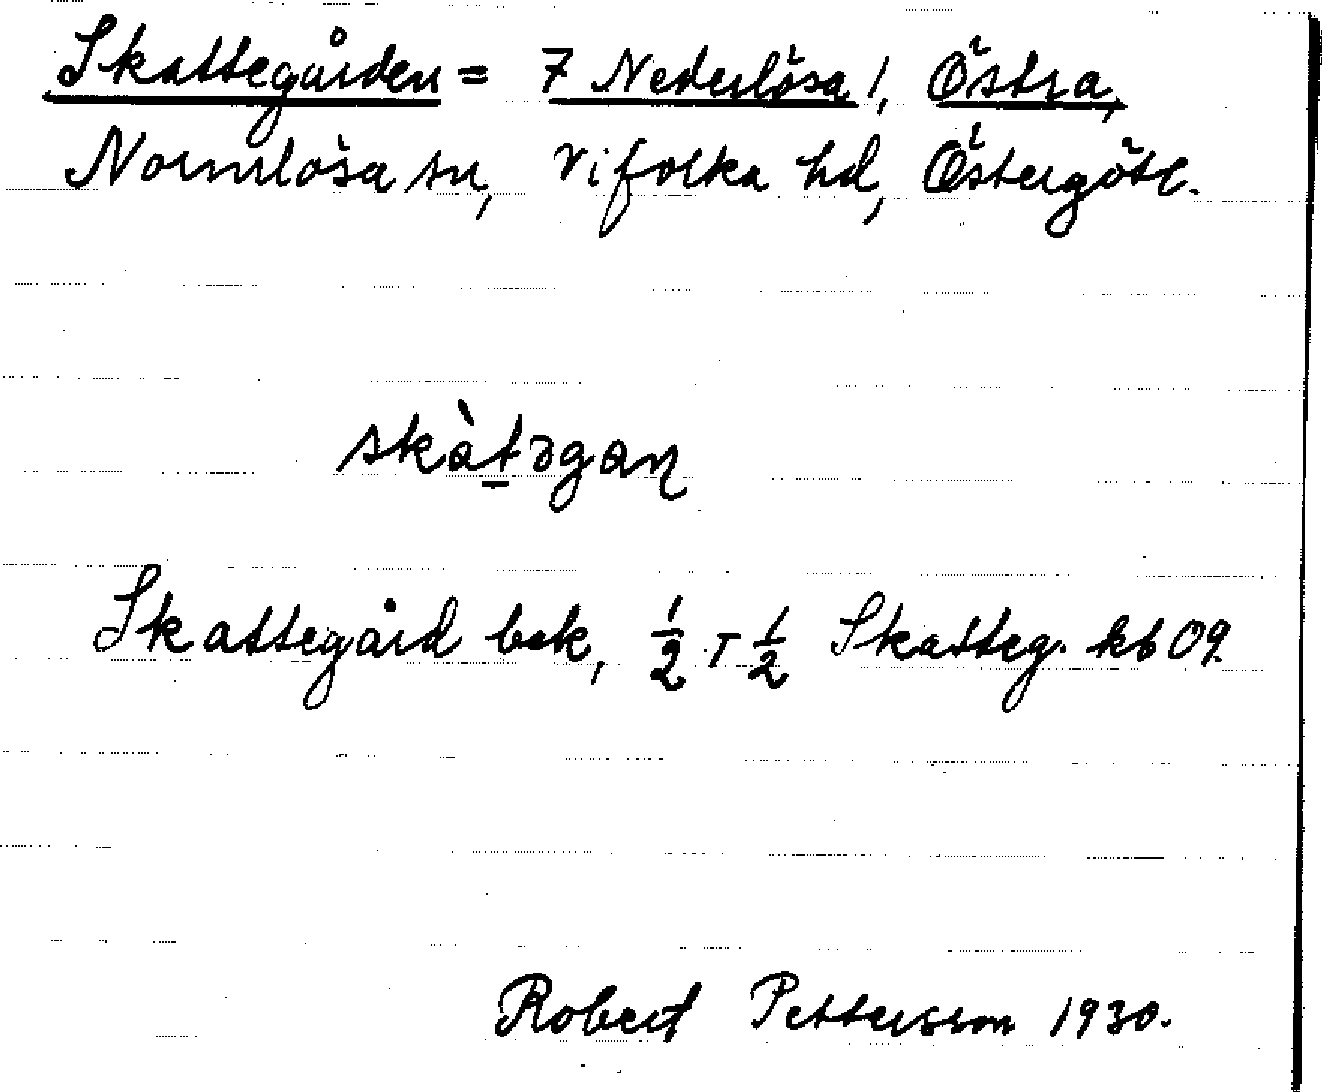 Skattegården = 7 Nederlösa 1, Östra,
Normlösa sn, Vifolka hd, Östergötl.
skàt̠əgaɳ
Skattegård bek, 1/2 + 1/2 Skatteg. kb 09.
Robert Pettersson 1930.